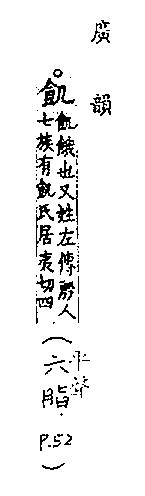 廣韻
飢飢餓也又姓左傳殷人
七族有飢氏居夷切四
(平聲六脂. P.52)